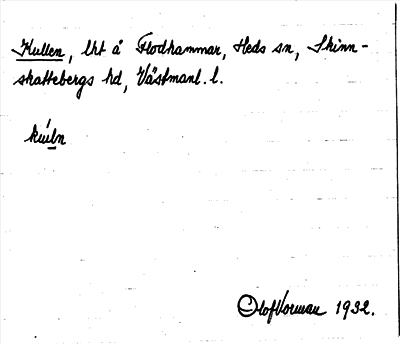 Kullen, lht å Flodhammar, Heds sn, Skinn-
skattebergs hd, Västmanl. l.
kúln
Olof Vorman 1932.